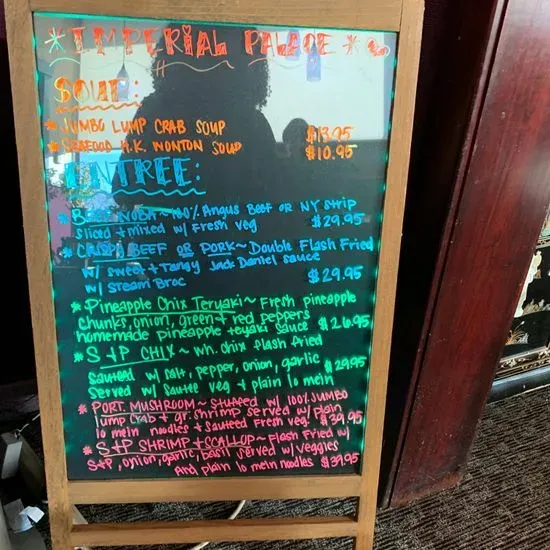 * IMPERIAL PALACE *
SOUP:
* JUMBO LUMP CRAB SOUP $13.95
* SEAFOOD H.K. WONTON SOUP $10.95
ENTREE:
* BEEF ~ 100% Angus Beef OR NY Strip
Sliced + mixed w/ Fresh veg $29.95
* CRISPY BEEF OR PORK ~ Double Flash Fried
w/ sweet + Tangy Jack Daniel sauce
w/ Steam Broc $29.95
* Pineapple Chix Teryaki ~ Fresh pineapple
chunks, onion, green + red peppers
homemade pineapple teyaki sauce $26.95
* S + P CHIX ~ wh. chix flash fried
Sauteed w/ salt, pepper, onion, garlic $29.95
Served w/ Sautee veg + plain lo mein
* PORT. MUSHROOM ~ Stuffed w/ 100% JUMBO
lump Crab + gr. shrimp served w/ plain
lo mein noodles + Sauteed Fresh veg. $39.95
* S+P SHRIMP + SCALLOP ~ Flash Fried w/
S+P, onion, garlic, basil served w/ veggies
And plain lo mein noodles $39.95